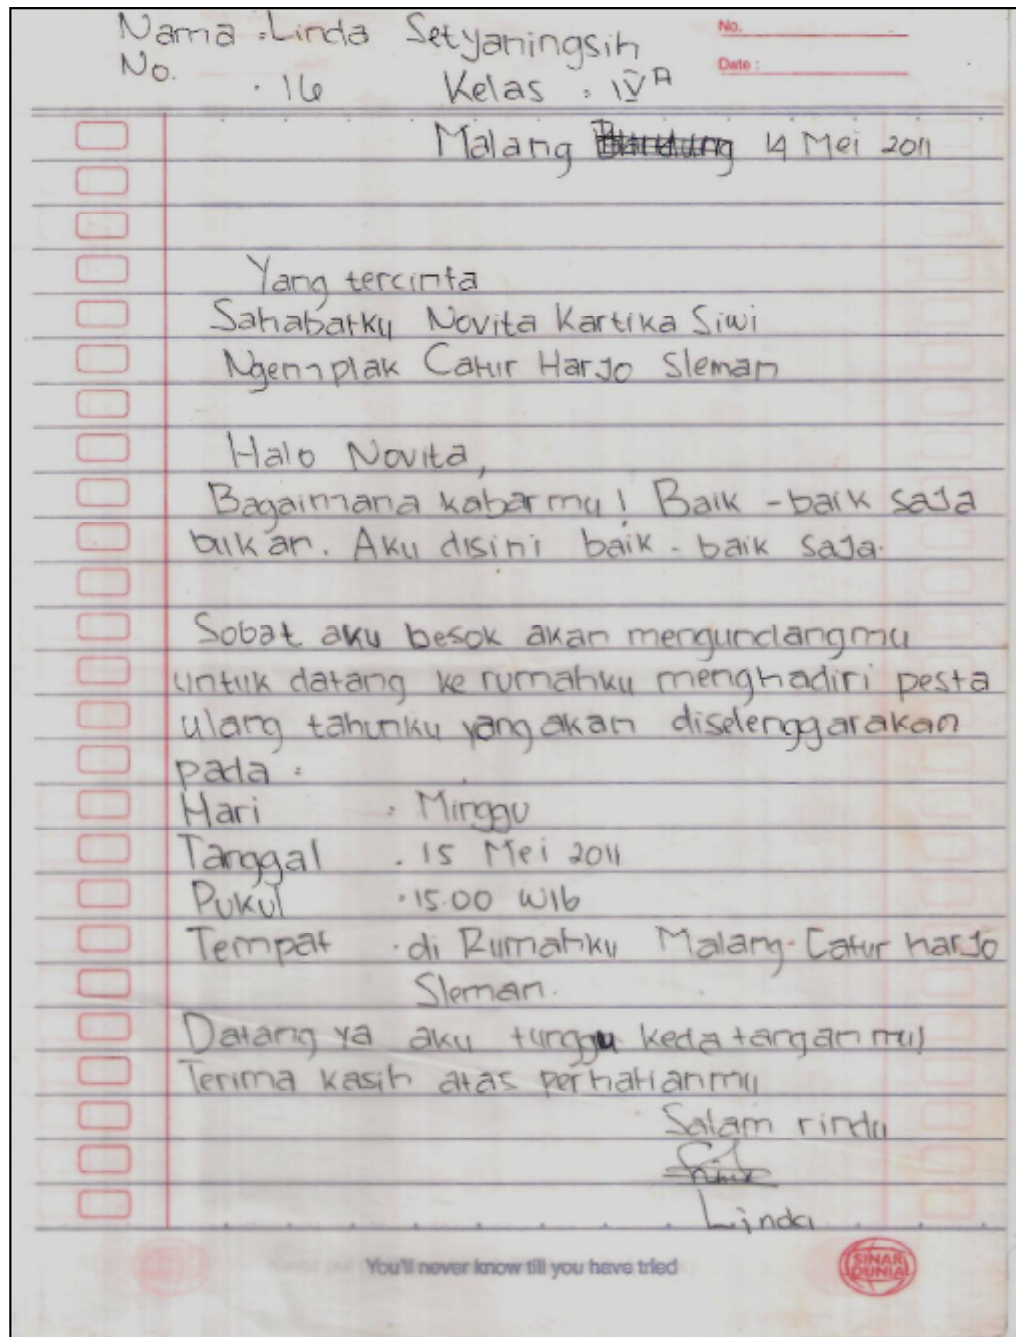 Nama : Linda Setyaningsih
No. : 16 Kelas : IV A
No.
Date :
Malang 14 Mei 2011
Yang tercinta
Sahabatku Novita Kartika Siwi
Ngemplak Catur Harjo Sleman
Halo Novita,
Bagaimana kabarmu! Baik - baik saja
bukan. Aku disini baik - baik saja.
Sobat aku besok akan mengundangmu
untuk datang ke rumahku menghadiri pesta
ulang tahunku yang akan diselenggarakan
pada :
Hari : Minggu
Tanggal : 15 Mei 2011
Pukul : 15.00 WIB
Tempat : di Rumahku Malang. Catur harjo
Sleman.
Datang ya aku tunggu kedatanganmu!
Terima kasih atas perhatianmu
Salam rindu
Linda
You'll never know till you have tried
SINAR DUNIA